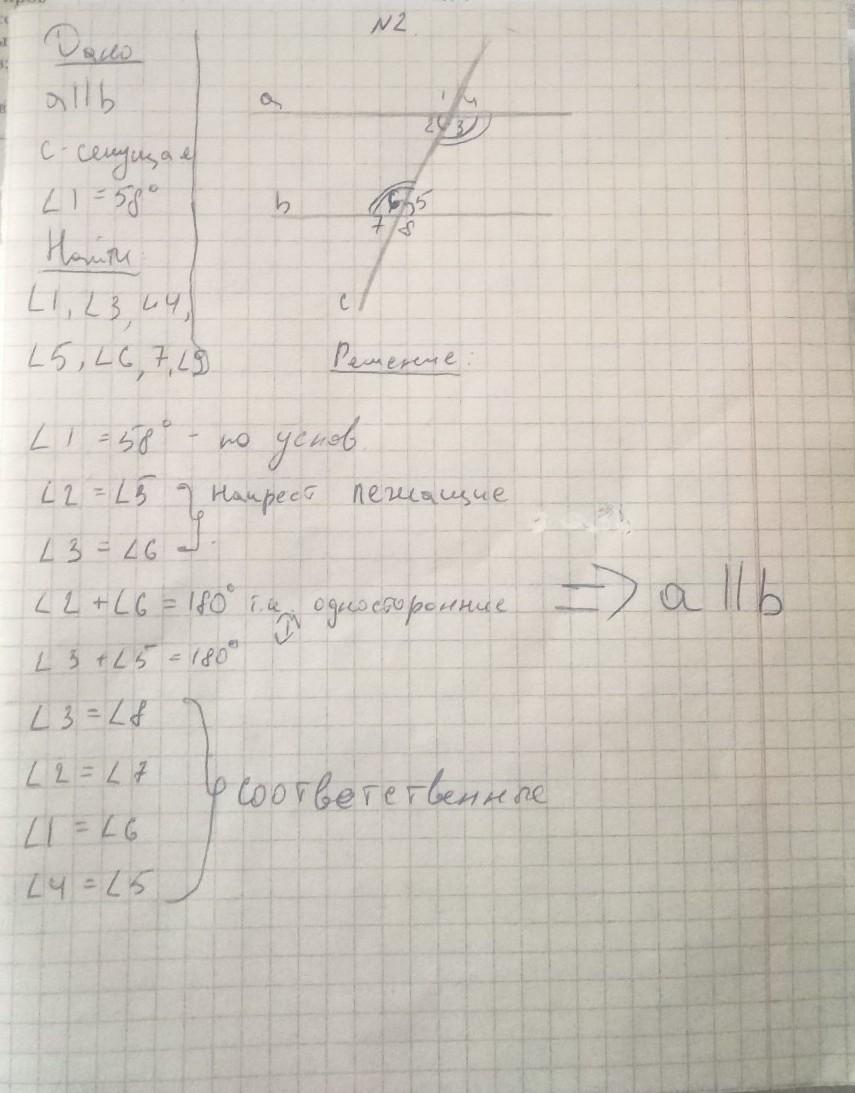 N2
Дано
a||b
c-секущая
∠1 = 58°
Найти:
∠1, ∠3, ∠4,
∠5, ∠6, 7, ∠9
a
1 4
2 3
b
6 5
7 8
c
Решение:
∠1 = 58° - по услов.
∠2 = ∠5 } накрест лежащие
∠3 = ∠6
∠2 + ∠6 = 180° т.к. односторонние => a || b
∠3 + ∠5 = 180°
∠3 = ∠8
∠2 = ∠7
} соответственные
∠1 = ∠6
∠4 = ∠5